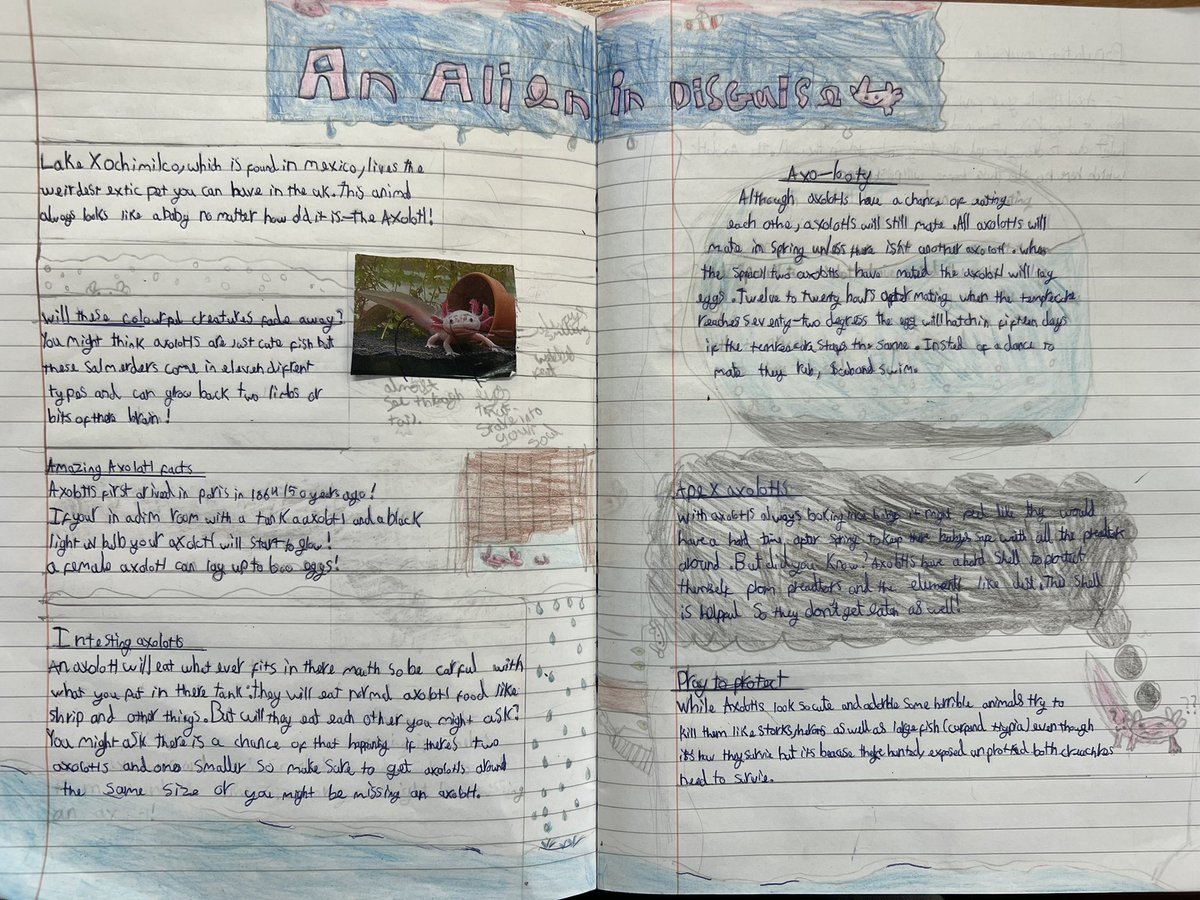 An Alien in Disguise
Lake Xochimilco, which is found in mexico, lives the
weirdest extic pet you can have in the uk. This animal
always looks like a baby no matter how old it is-the Axolotl!
Will these colourful creatures fade away?
You might think axolotls are just cute fish but
these Salmerders come in eleven difrent
types and can grow back two limbs or
bits of there brain!
almost
see through
tail.
stare into
your
soul
Amazing Axolotl facts
Axolotls first arrived in paris in 1864 150 years ago!
If your in a dim room with a tank a axolotl and a black
light bulb your axolotl will start to glow!
a female axolotl can lay up to 600 eggs!
Intesting axolotls
An axolotl will eat what ever fits in there mouth so be carful with
what you put in there tank. they will eat normal axolotl food like
shrip and other things. But will they eat each other you might ask?
You might ask there is a chance of that happening if there's two
axolotls and one smaller so make sure to get axolotls around
the same size or you might be missing an axolotl.
Axo-looty
Although axolotls have a chance of eating
each othe, axolotls will still mate. All axolotls will
mate in spring unless there isn't another axolotl. when
the two axolotls have mated the axolotl will lay
eggs. Twelve to twenty hours after mating when the
reaches seventy-two degress the egg will hatch in fifteen days
if the stays the same. Insted of a dance to
mate they rub, and swim.
Apex axolotls
With axolotls always looking like babys it might feel like they would
have a hard time after spring to keep there babys safe with all the preadtors
around. But did you know? Axolotls have a hard shell to protect
themself from preadtors and the elements like dust. This shell
is helpful so they don't get eaten as well!
Pray to protect
While Axolotls look so cute and adorble some horrible animals try to
kill them like storks, herons as well as large fish (carp and tilapia) even though
it's how they survie but its because hunted, exposed both
need to survie.
??